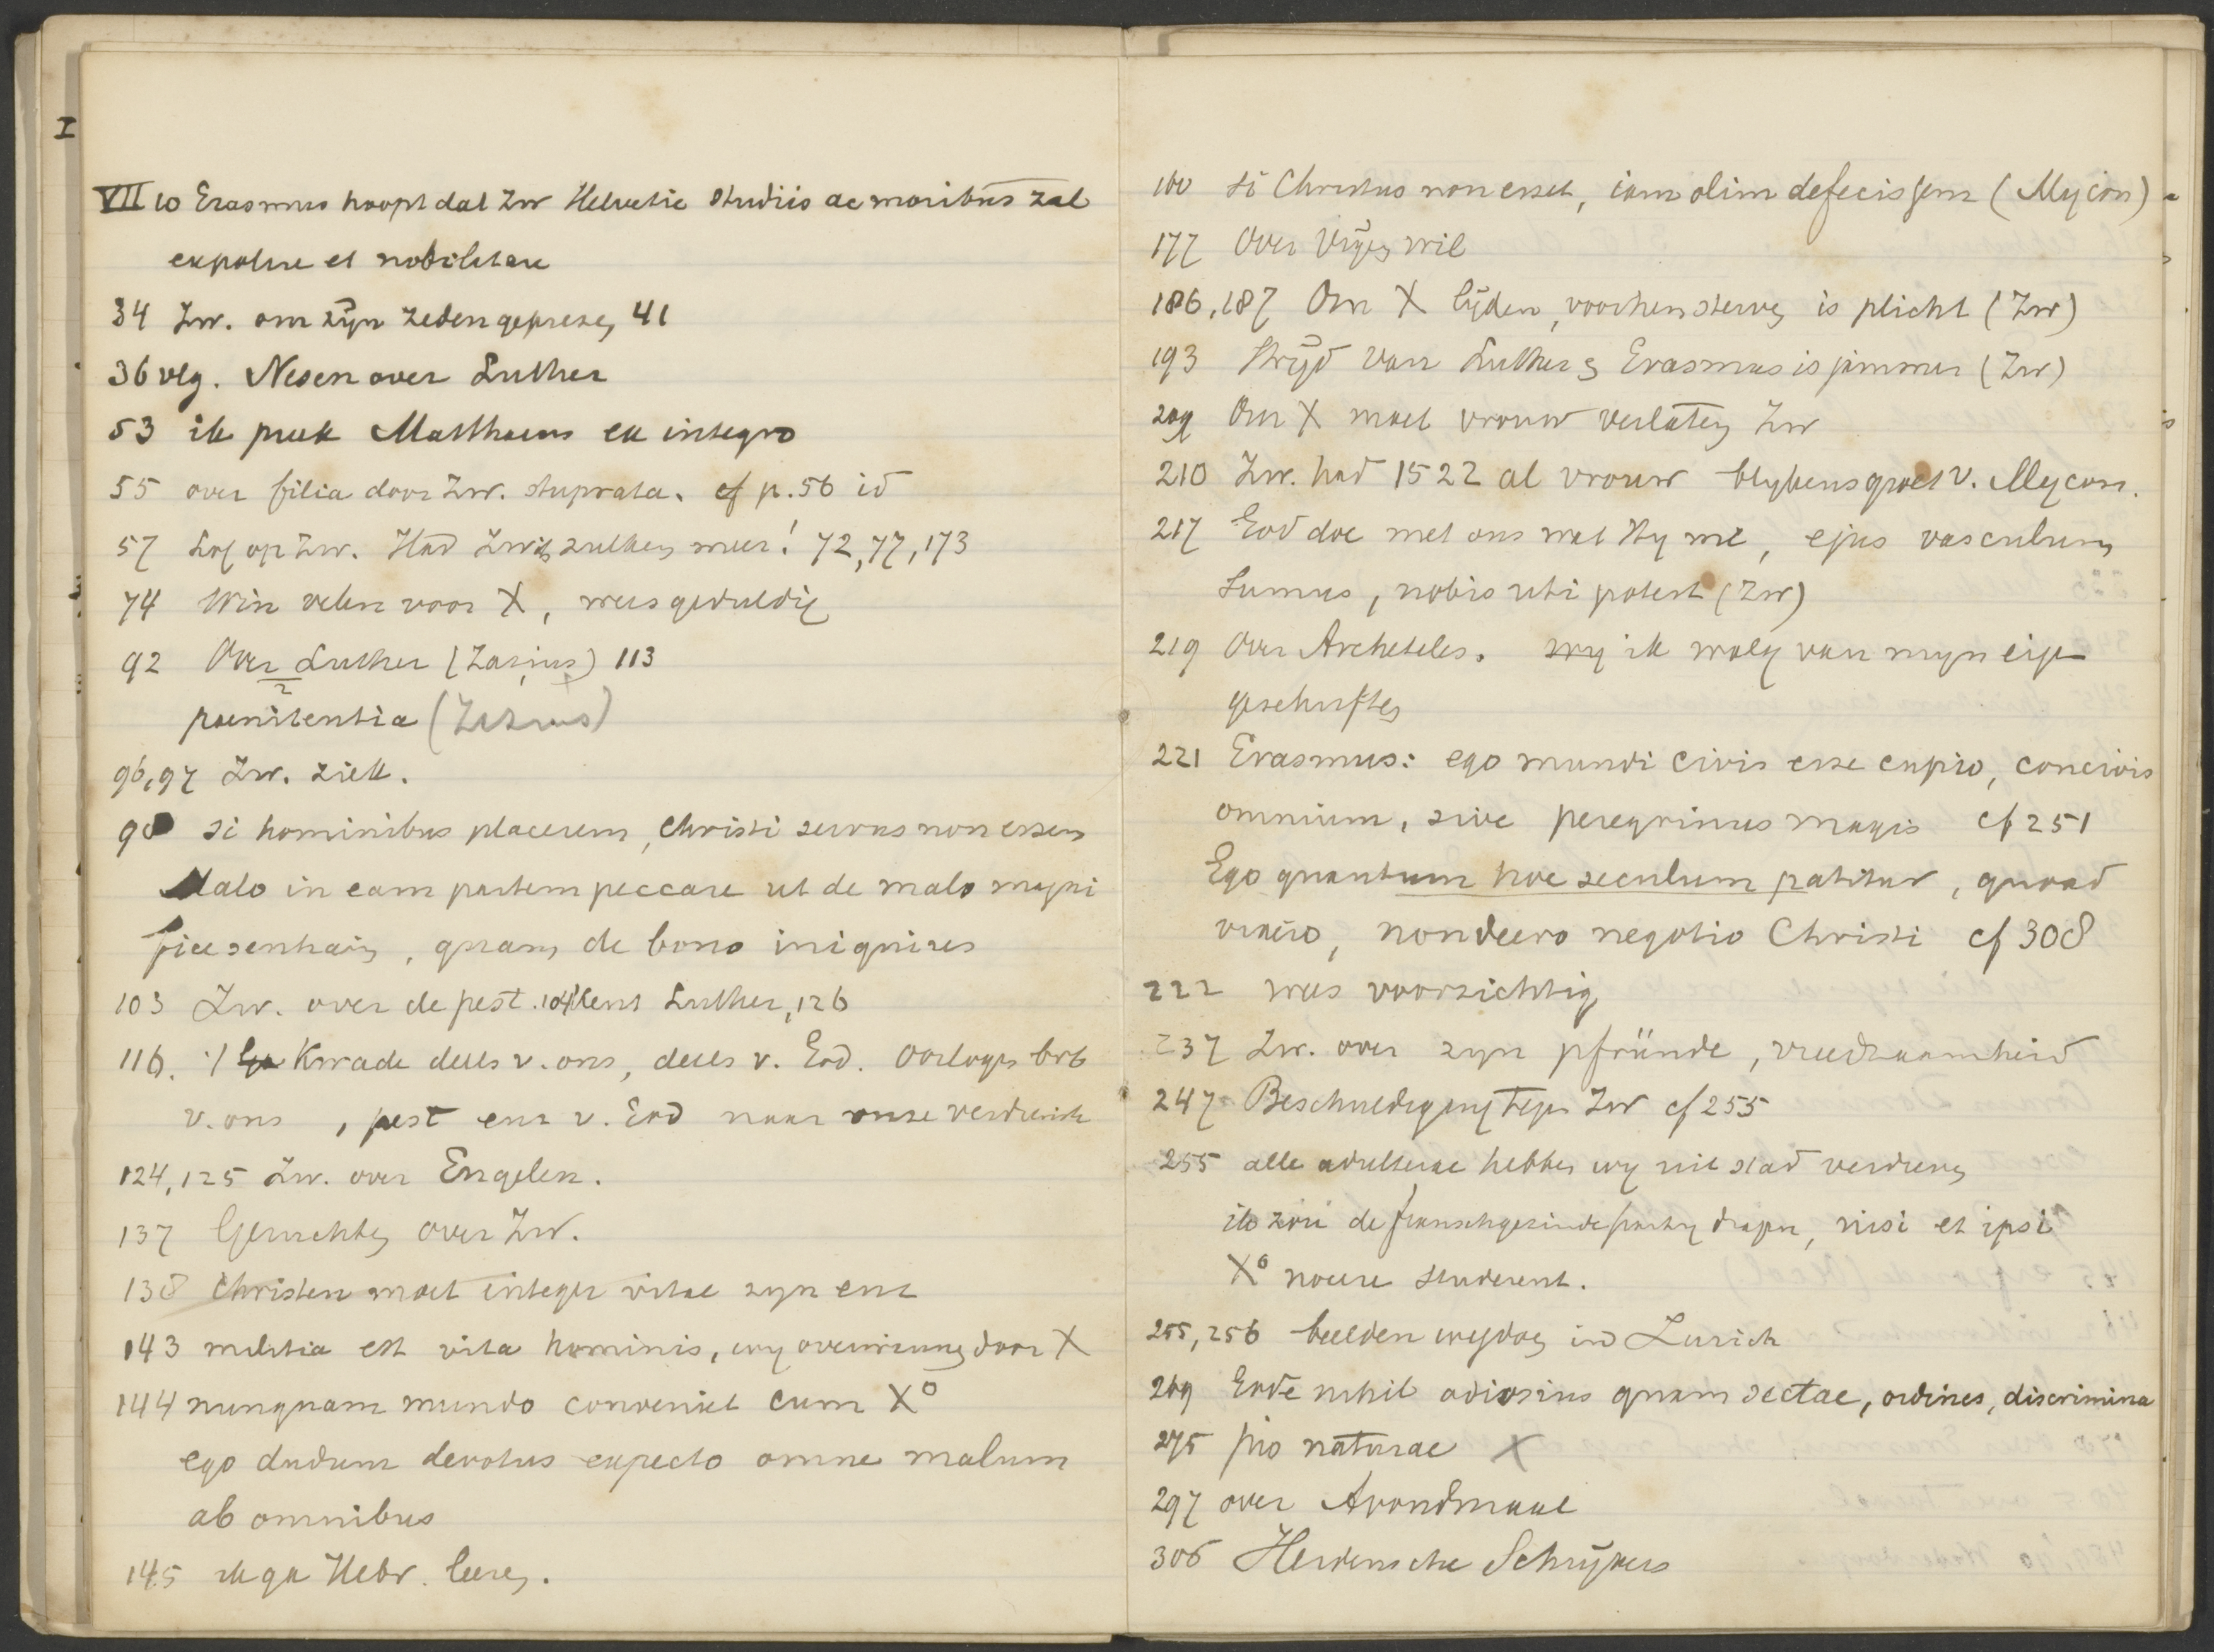 I
VII 10 Erasmus hoopt dat Zw Helvetie studiis ac moribus zal
expolire et nobilitare
34 Zw. om zijn zeden geprezen 41
36 vlg. Nesen over Luther
53 ik preek Matthaeus ex integro
55 over filia door Zw. stuprata. cf p. 56 id
57 Lof op Zw. Had Zwits zulken meer! 72, 77, 173
74 Win velen voor X, wees geduldig
92 Over Luther (Zasius) 113
poenitentia (Zasius)
96,97 Zw. ziek.
98 si hominibus placerem, Christi servus non essem
Malo in eam partem peccare ut de malo magni
fice sentiam, quam de bono iniquius
103 Zw. over de pest. 104 kent Luther, 126
116. Kwade deels v. ons, deels v. God. Oorlogen bvb
v. ons, pest enz v. God naar onze verdienste
124, 125 Zw. over Engelen.
137 Geruchten over Zw.
138 Christen moet integer vitae zyn enz
143 militia est vita hominis, wy overwinnen door X
144 nunquam mundo conveniet cum X°
ego dudum devotus expecto omne malum
ab omnibus
145 ik ga Hebr. leeren.
160 si Christus non esset, iam olim defecissem (Mycon)
177 Over vrijen wil
186, 187 Om X lijden, voor hem sterven is plicht (Zw)
193 Strijd van Luther en Erasmus is jammer (Zw)
209 Om X moet vrouw verlaten Zw
210 Zw. had 1522 al vrouw blykens groet v. Mycon.
217 God doe met ons wat Hy wil, ejus vasculum
sumus, nobis uti potest (Zw)
219 Over Archeteles. wy ik walg van myn eigen
geschriften
221 Erasmus: ego mundi civis esse cupio, concivis
omnium, sive peregrinus magis cf 251
Ego quantum hoc seculum patitur, quoad
vixero, non deero negotio Christi cf 308
222 wees voorzichtig
237 Zw. over zyn pfründe, vreedzaamheid
247 Beschuldiging tegen Zw cf 255
255 alle adulterae hebben wy uit stad verdreven
ik zou de franschgezinde party dragen, nisi et ipsi
X° nocere studerent.
255, 256 beelden wegdoen in Zurich
269 Gode nihil odiosius quam sectae, ordines, discrimina
275 pro naturae X
297 over Avondmaal
306 Heidensche Schrijvers